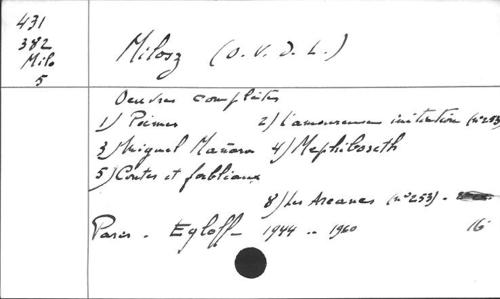 431
382
Milo
5
Milosz (O. V. D. L.)
Oeuvres complètes
1) Poèmes 2) L'amoureuse initiation (n°253)
3) Miguel Mañara 4) Mephiboseth
5) Contes et fabliaux
8) Les Arcanes (n°253) -
Paris - Egloff - 1944 .. 1960 16°